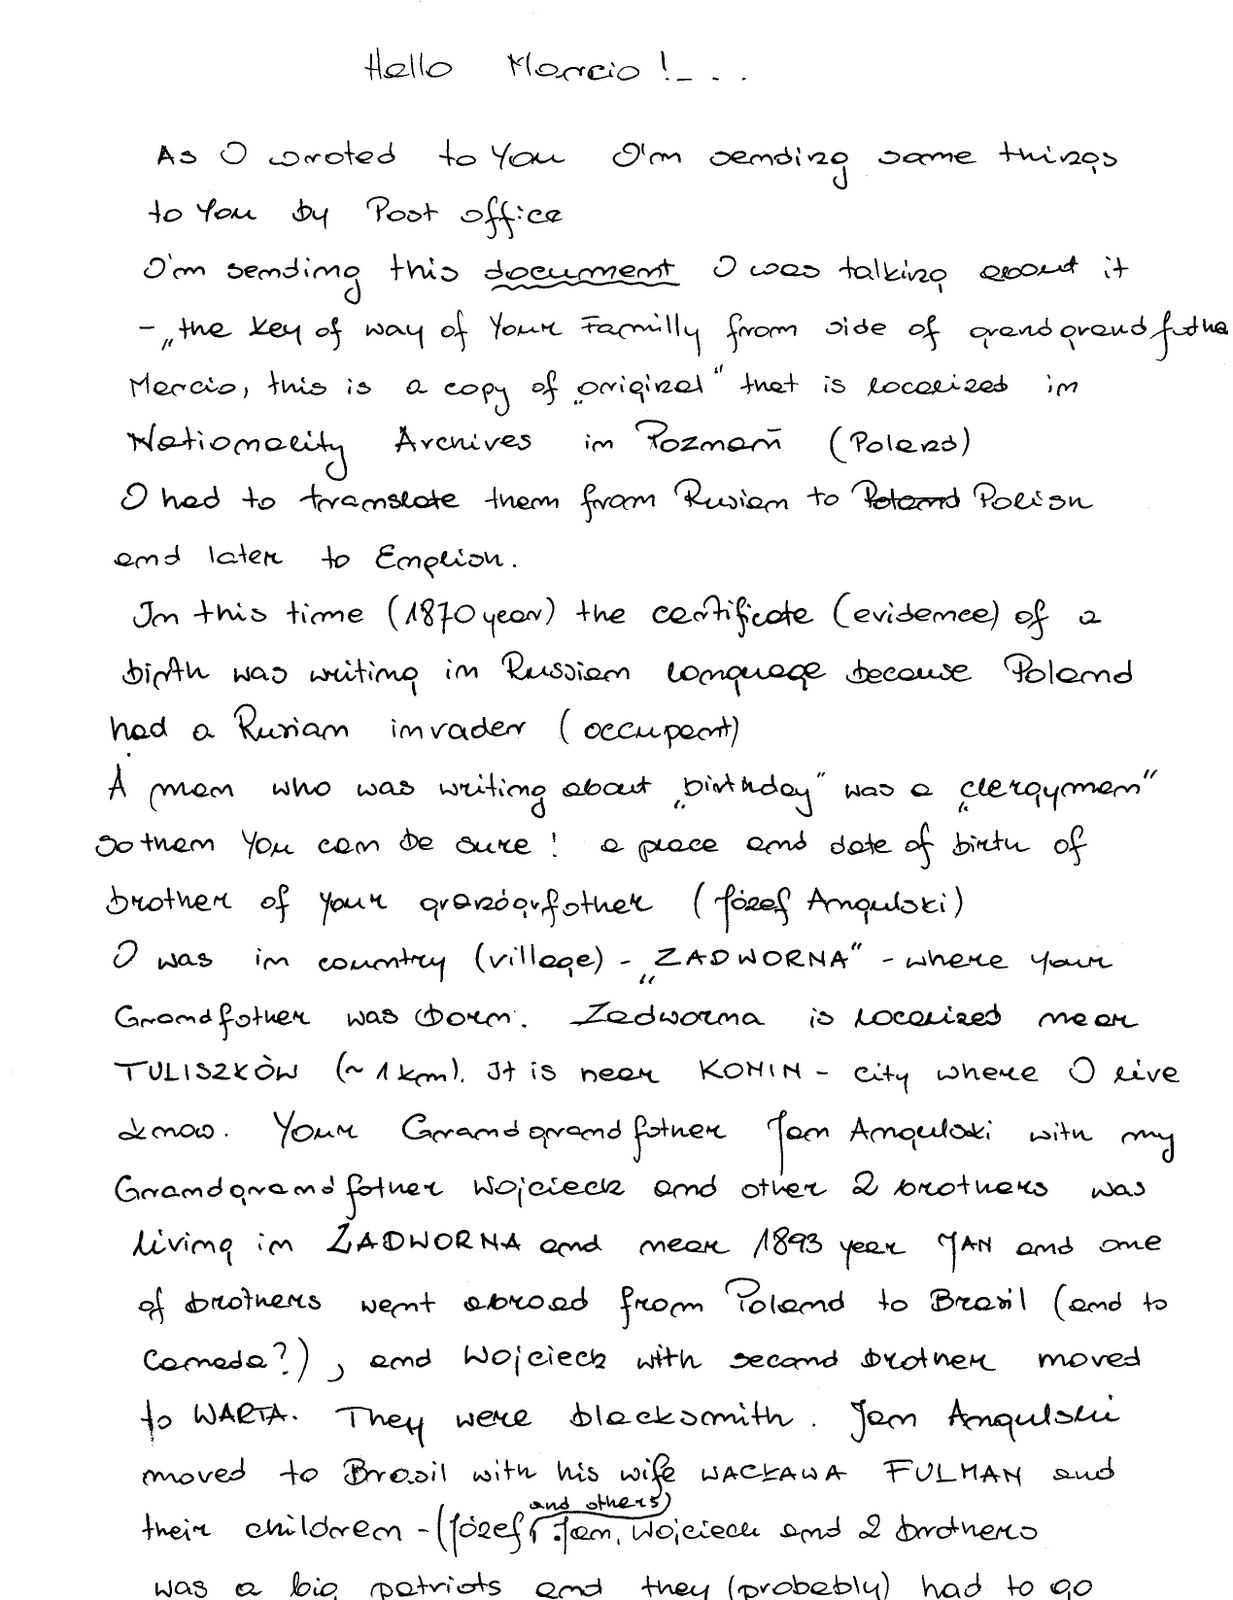 Hello Marcio !_ . .
As I wroted to You I'm sending same things
to You by Post office
I'm sending this document I was talking about it
- „the key of way of Your Familly from side of grandgrandfathe
Marcio, this is a copy of „original" that is localized in
Nationality Archives in Poznań (Poland)
I had to translate them from Rusian to Poland Polish
and later to English.
In this time (1870 year) the certificate (evidence) of a
birth was writing in Russian language because Poland
had a Rusian invader (occupant)
A man who was writing about „birthday" was a „clergyman"
So then You can be sure ! a place and date of birth of
brother of your grandgrfather (Józef Angulski)
I was in country (village) - „ZADWORNA" - where your
Grandfather was born. Zadworna is localized near
TULISZKÒW (~ 1 km). It is near KONIN - city where I live
know. Your Grandgrandfather Jan Angulski with my
Grandgrandfather Wojcieck and other 2 brothers was
living in ZADWORNA and near 1893 year JAN and one
of brothers went abroad from Poland to Brasil (and to
Canada?) , and Wojcieck with second brother moved
to WARTA. They were blacksmith. Jan Angulski
moved to Brasil with his wife WACŁAWA FULMAN and
their children - (Józef and others) Jan, Wojcieck and 2 brothers
was a big patriots and they (probebly) had to go